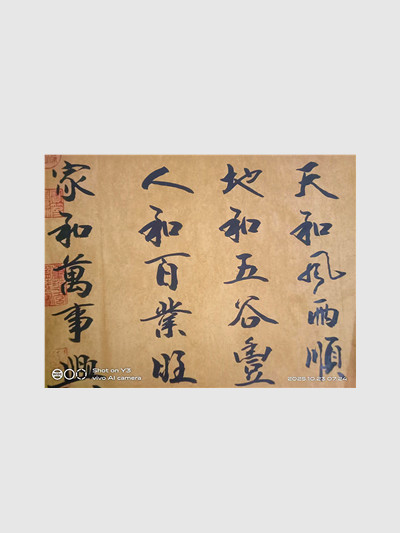 天和風雨順
地和五谷豐
人和百業旺
家和萬事興
Shot on Y3
vivo AI camera
2023.10.23 07:24